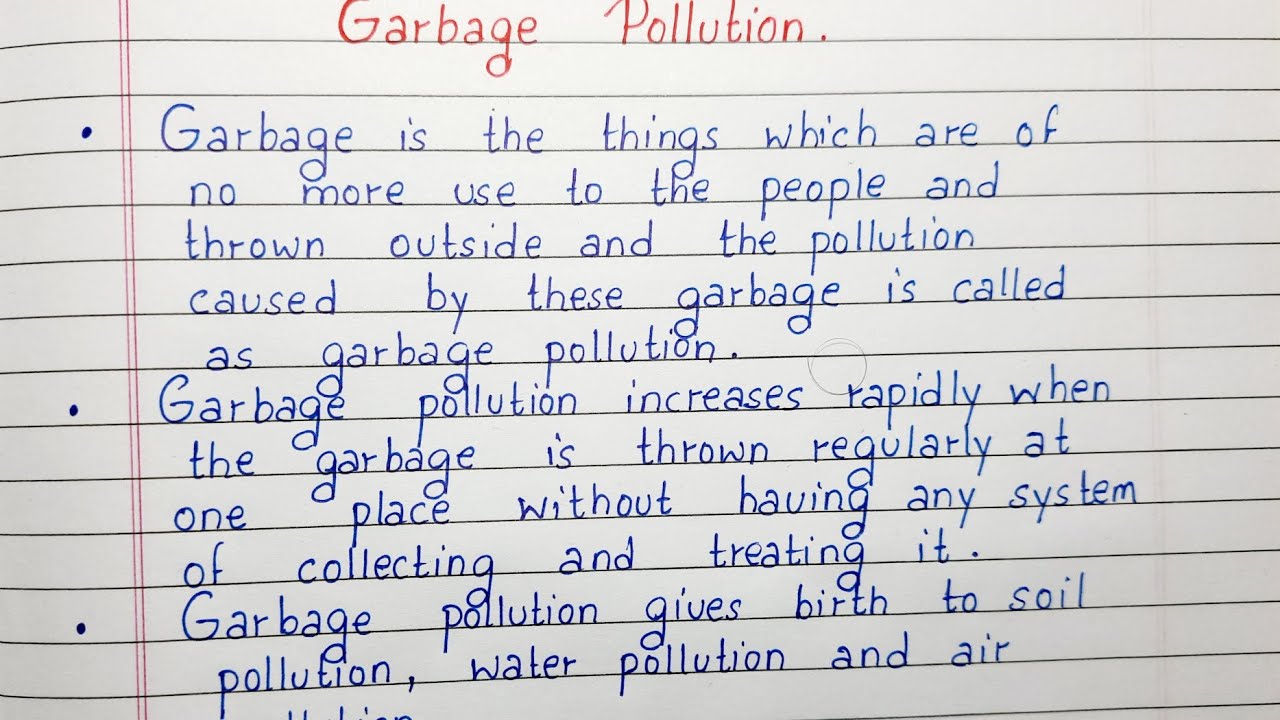 Garbage Pollution.
• Garbage is the things which are of
no more use to the people and
thrown outside and the pollution
caused by these garbage is called
as garbage pollution.
• Garbage pollution increases rapidly when
the garbage is thrown regularly at
one place without having any system
of collecting and treating it.
• Garbage pollution gives birth to soil
pollution, water pollution and air